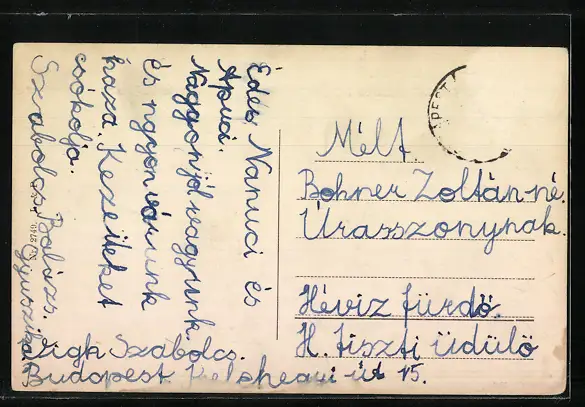 Édes Nanuci és
Apuci.
Nagyon jól vagyunk
és nagyon várunk
haza. Kezeiteket
csókolja.
Szabolcs, Balázs.
Gyuszika
Vigh Szabolcs.
Budapest út 15.
Mélt.
Bohner Zoltán-né.
Úrasszonynak.
Hévíz fürdő.
H. tiszti üdülő
PEST
No. 2749.